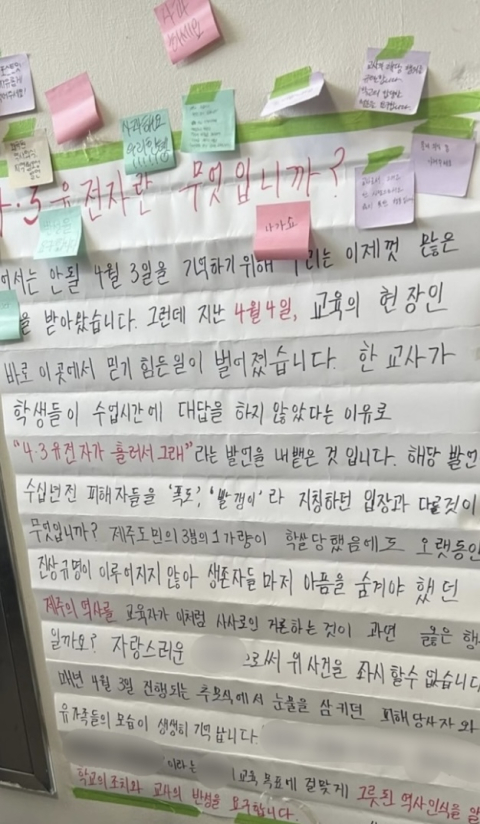 사과
하세요
사과해요
우리한테
나가요
4·3유전자란 무엇입니까?
어서는 안될 4월 3일을 기억하기위해 우리는 이제껏 많은
을 받아왔습니다. 그런데 지난 4월 4일, 교육의 현장인
바로 이곳에서 믿기 힘든일이 벌어졌습니다. 한 교사가
학생들이 수업시간에 대답을 하지 않았다는 이유로
"4·3유전자가 흘러서 그래"라는 발언을 내뱉은 것 입니다. 해당 발언
수십년전 피해자들을 '폭도', '빨갱이'라 지칭하던 입장과 다를것이
무엇입니까? 제주도민의 3분의 1 가량이 학살당했음에도 오랫동안
진상규명이 이루어지지 않아 생존자들마저 아픔을 숨겨야 했던
제주의 역사를 교육자가 이처럼 사사로이 거론하는 것이 과연 옳은 행
일까요? 자랑스러운 으로써 위 사건을 좌시할수 없습니다
매년 4월 3일 진행되는 추모식에서 눈물을 삼키던 피해당사자와
유가족들의 모습이 생생히 기억납니다.
이라는 교육 목표에 걸맞게 그릇된 역사인식을 알
학교의 조치와 교사의 반성을 요구합니다.